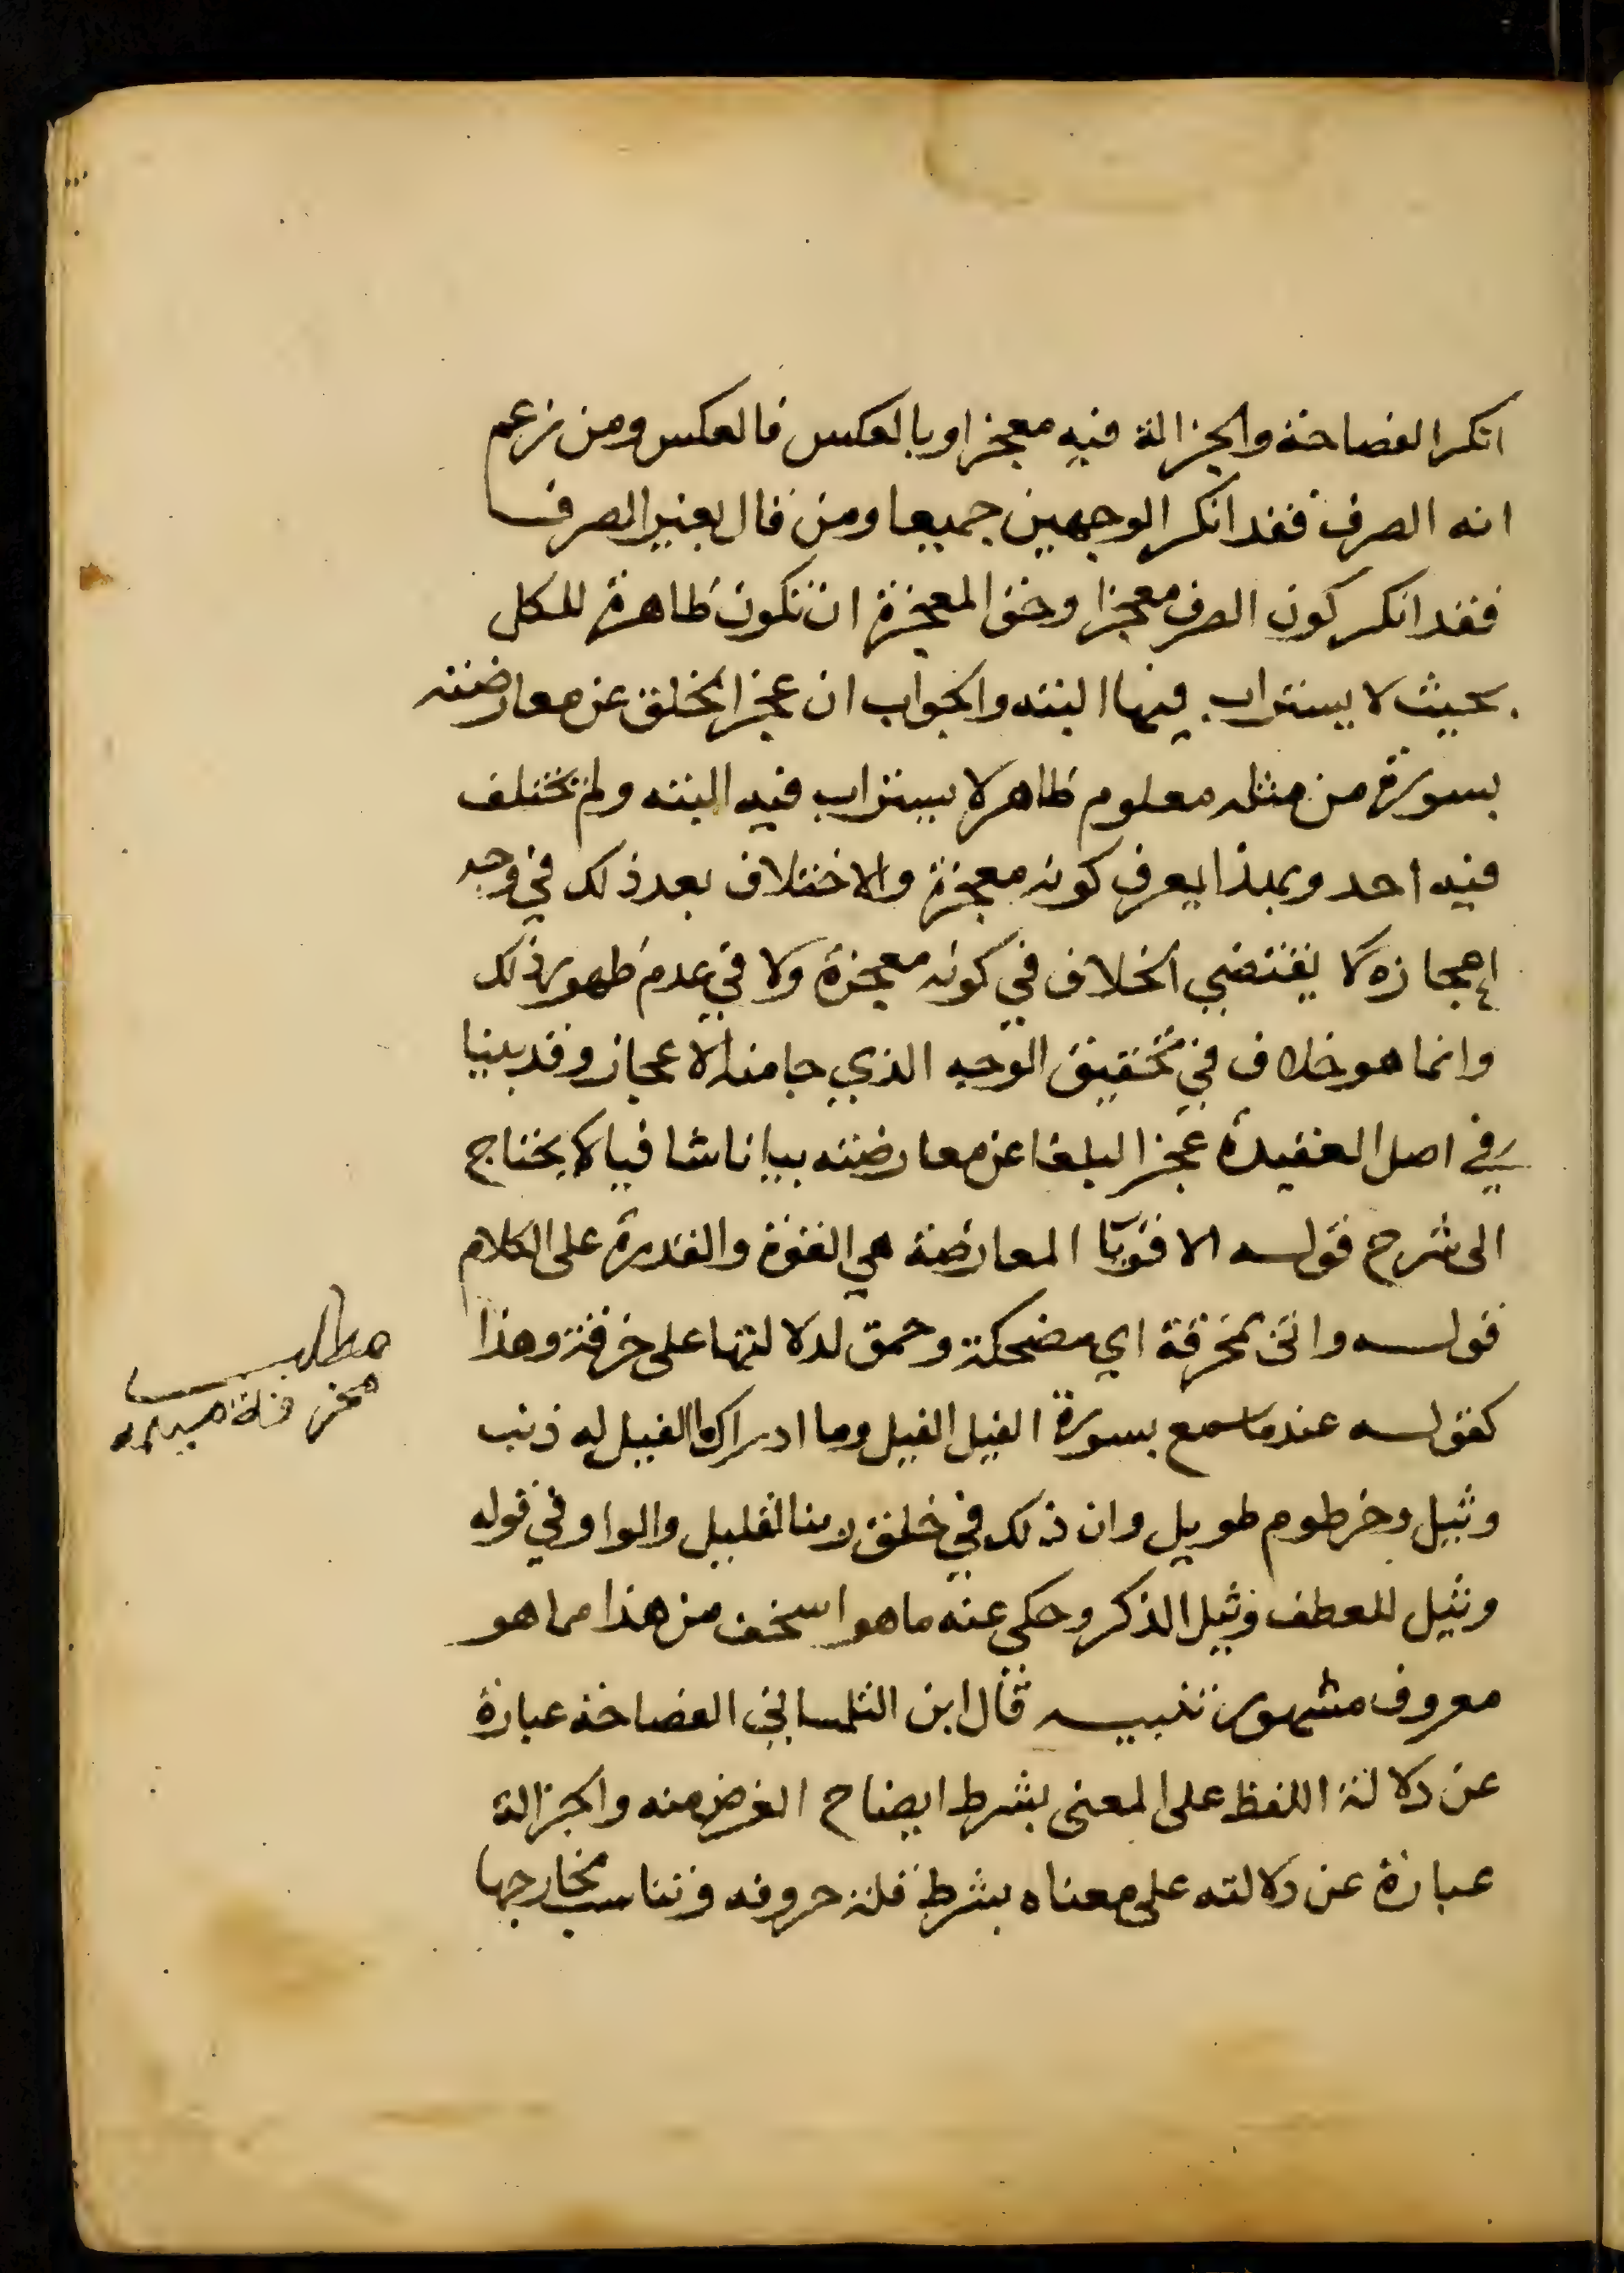 انكر الفصاحة والجزالة فيه معجزا وبالعكس فالعكس ومن زعم
انه الصرف فقد انكر الوجهين جميعا ومن قال بغير الصرف
فقد انكر كون الصرف معجزا وحق المعجزة ان تكون ظاهرة للكل
بحيث لا يستراب فيها البتة والجواب ان عجز الخلق عن معارضته
بسورة من مثله معلوم ظاهر لا يستراب فيه البتة ولم تختلف
فيه احد وبهذا يعرف كونه معجزة والاختلاف بعد ذلك في وجه
اعجازه لا يقتضي الخلاف في كونه معجزة ولا في عدم ظهور ذلك
وانما هو خلاف في تحقيق الوجه الذي جا منه الاعجاز وقد بينا
في اصل العقيدة عجز البلغا عن معارضته بيانا شافيا لا يحتاج
الى شرح قوله الا قويا المعارضة هي القوة والقدرة على الكلام
قوله واتى بمخرقة اي مضحكة وحمق لدلالتها على خرقه وهذا
كقوله عندما سمع بسورة الفيل الفيل وما ادراك ما الفيل له ذنب
وثيل وخرطوم طويل وان ذلك في خلق ربنا لقليل والواو في قوله
وثيل للعطف وثيل الذكر وحكى عنه ما هو اسخف من هذا مما هو
معروف مشهور تنبيه قال ابن التلمساني الفصاحة عبارة
عن دلالة اللفظ على المعنى بشرط ايضاح الغرض منه والجزالة
عبارة عن دلالته على معناه بشرط قلة حروفه وتناسب مخارجها
مطلب
مخرقة مسيلمه